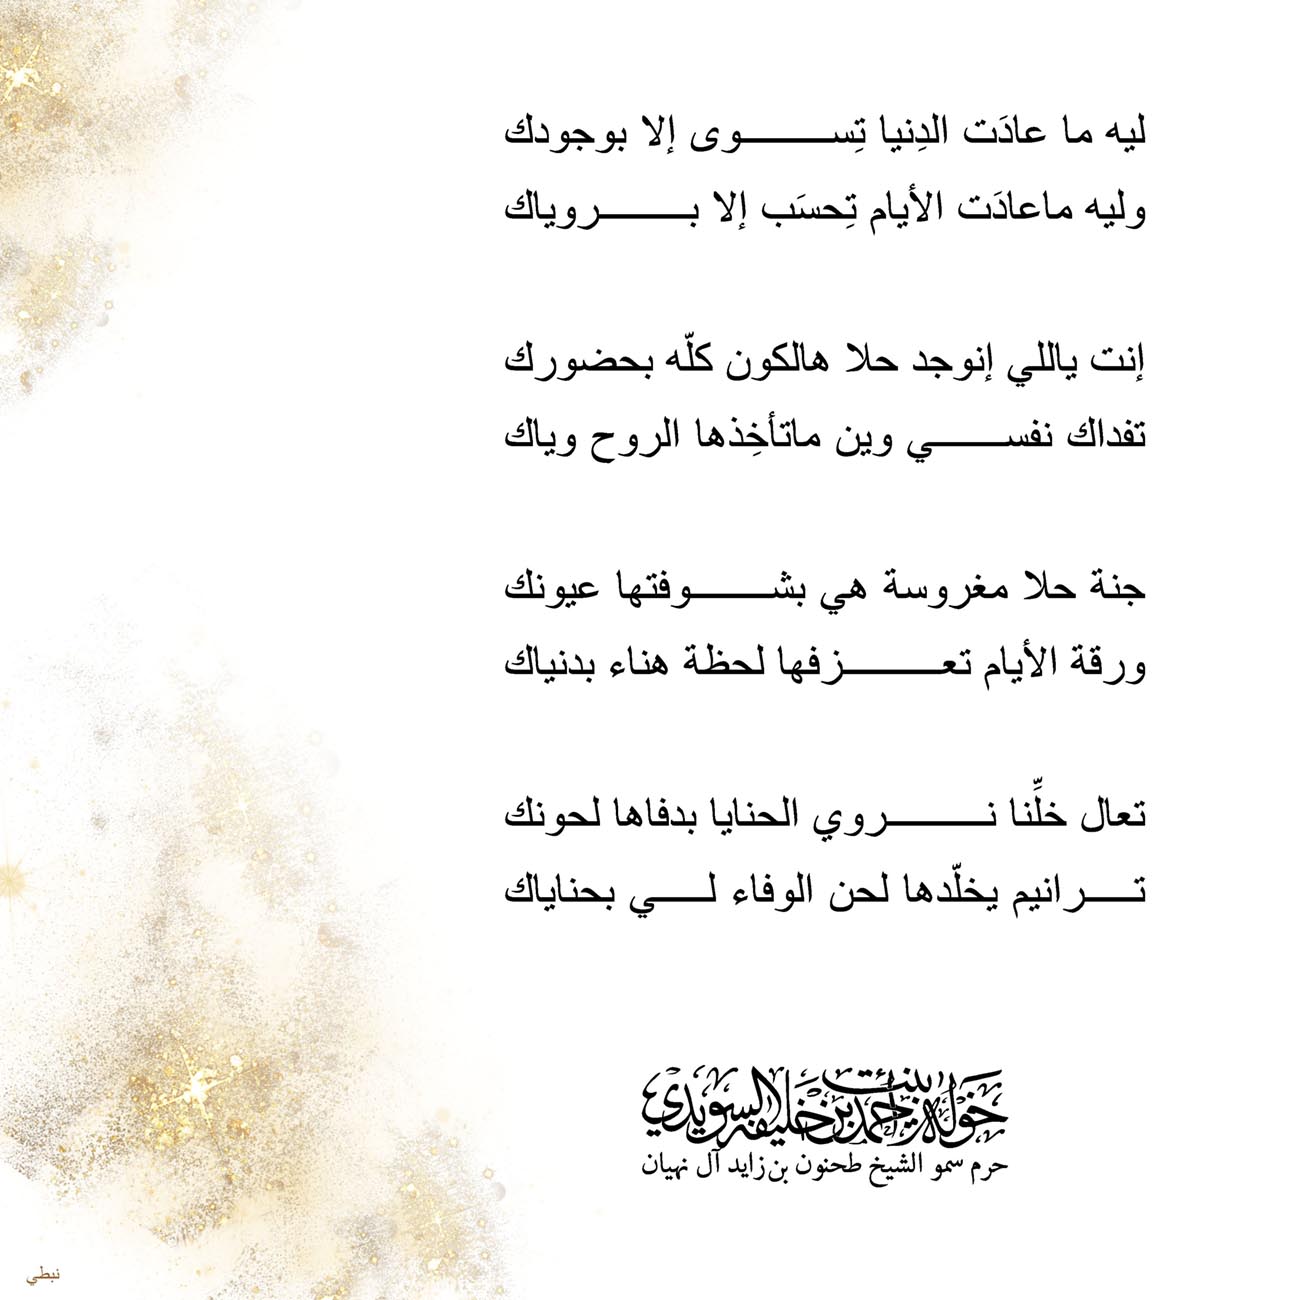 ليه ما عادَت الدِنيا تِســـــــوى إلا بوجودك
وليه ماعادَت الأيام تِحسَب إلا بـــــــروياك
إنت ياللي إنوجد حلا هالكون كلّه بحضورك
تفداك نفســـــــي وين ماتأخِذها الروح وياك
جنة حلا مغروسة هي بشـــــــوفتها عيونك
ورقة الأيام تعـــــــزفها لحظة هناء بدنياك
تعال خلِّنا نـــــــروي الحنايا بدفاها لحونك
تـــــرانيم يخلّدها لحن الوفاء لـــــي بحناياك
خولة بنت أحمد بن خليفة السويدي
حرم سمو الشيخ طحنون بن زايد آل نهيان
نبطي